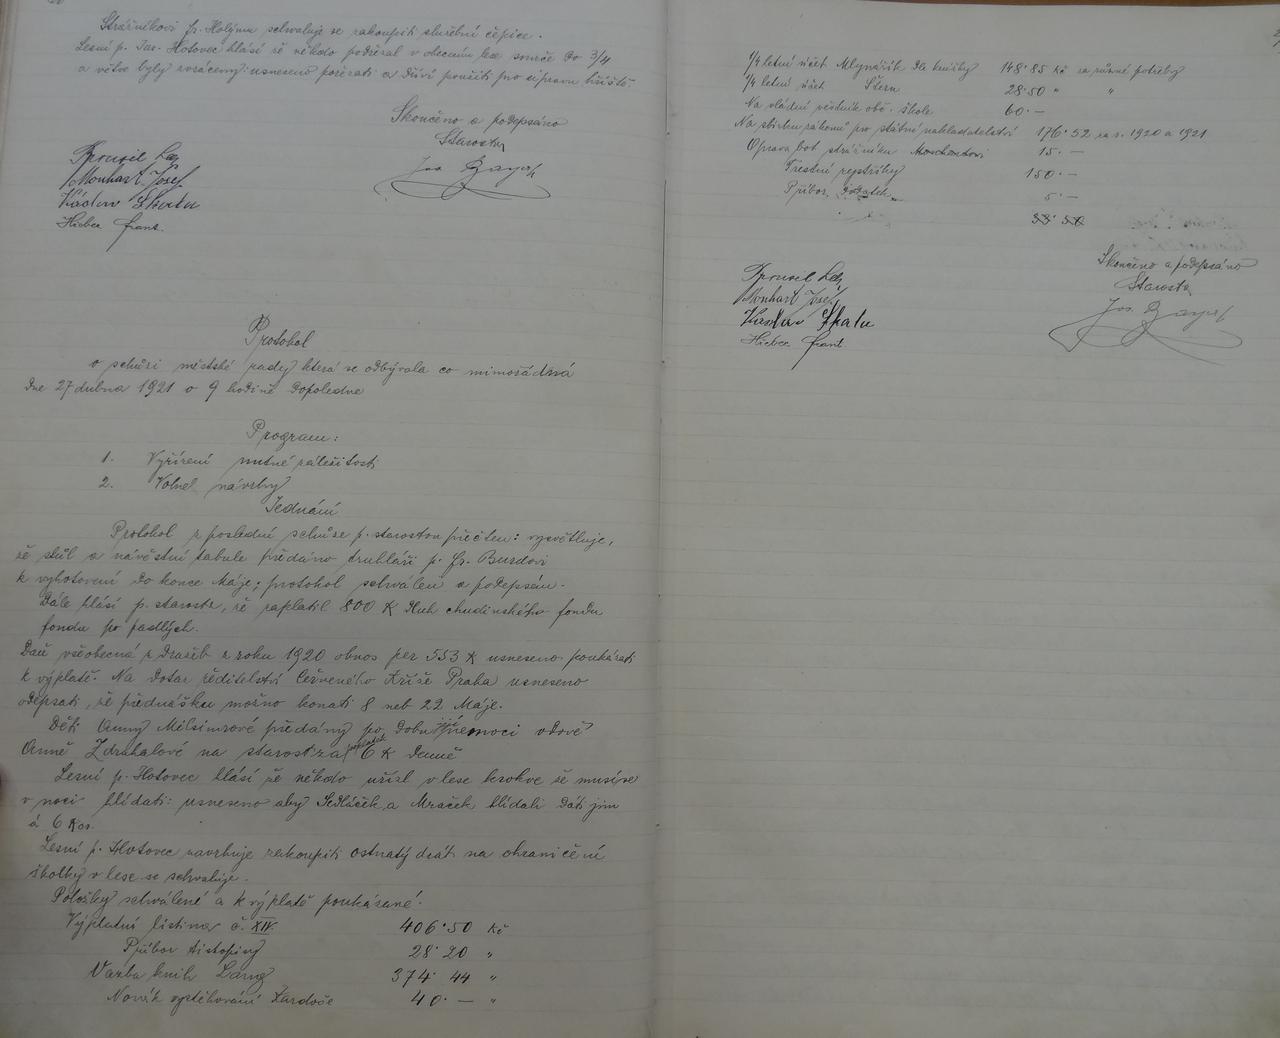 Strážníkovi fr. Holýmu schvaluje se zakoupiti služební čepice.
Lesní p. Jar. Hotovec hlásí že někdo podřezal v obecním lese smrče do 3/4
a větve byly rozházeny: usneseno pořezati a dříví použiti pro úpravu hřiště.
Skončeno a podepsáno
Starosta
Jos.
Monhart Josef
Václav Skala
frant.
Protokol
o schůzi městské rady která se odbývala co mimořádná
dne 27 dubna 1921 o 9 hodině dopoledne
Program:
1. Vyřízení nutné záležitosti
2. Volné návrhy
Jednání
Protokol z poslední schůze p. starostou přečten: vysvětluje,
že stůl a návěstní tabule předáno truhláři p. Fr. Burdovi
k vyhotovení do konce Máje; protokol schválen a podepsán.
Dále hlásí p. starosta, že zaplatil 800 K dluh chudinského fondu
fondu po padlých.
Daň všeobecná z dražeb z roku 1920 obnos per 553 K usneseno poukázati
k výplatě. Na dotaz ředitelství Červeného Kříže Praha usneseno
odepsati, že přednášku možno konati 8 neb 22 Máje.
Děti Anny předány po dobu její nemoci vdově
Anně Zdrahalové na starost za poplatek 6 K denně
Lesní p. Hotovec hlásí že někdo uřízl v lese krokve že musí se
v noci hlídati: usneseno aby Sedláček a Mráček hlídali dáti jim
á 6 Kor.
Lesní p. Hotovec navrhuje zakoupiti ostnatý drát na ohraničení
školky v lese se schvaluje.
Položky schválené a k výplatě poukázané.
Výplatní listina č. XIV. 406·50 Kč
Příbor tiskopisy 28·20 "
Vazba knih Lang 374·44 "
Novák vystěhování 40·— "
1/4 letní účet Mlynářík dle knížky 148·85 Kč za různé potřeby
1/4 letní účet Štern 28·50 " "
Na vládní věstník obč. škole 60·—
Na sbírku zákonů pro státní nakladatelství 176·52 za r. 1920 a 1921
Oprava bot strážníku 15·—
Trestní rejstříky 150·—
Příbor, 5·—
Skončeno a podepsáno
Starosta
Jos.
Monhart Josef
Václav Skala
frant